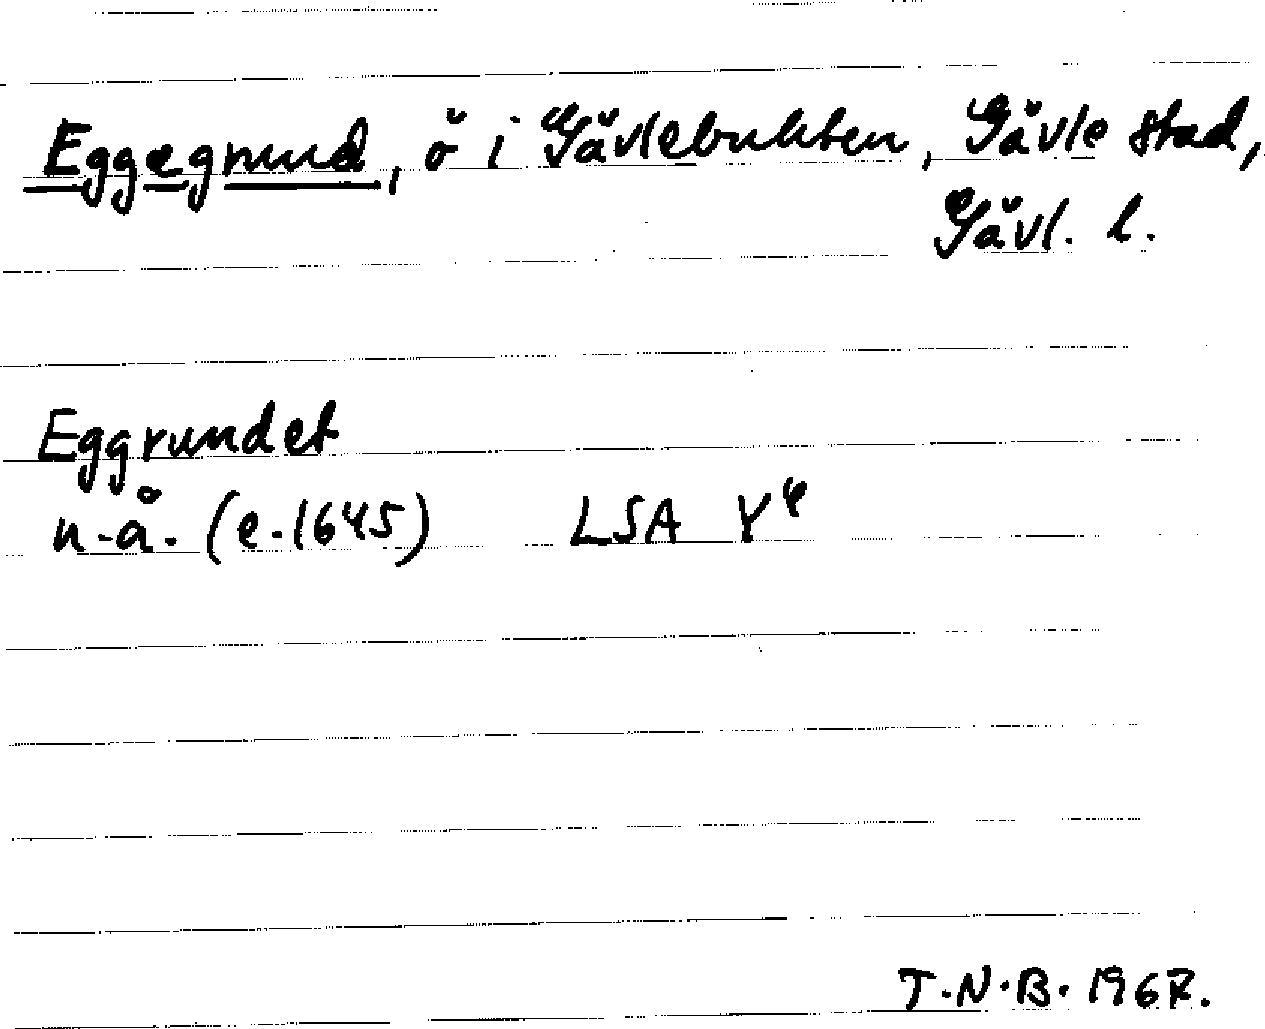 Eggegrund, ö i Gävlebukten, Gävle stad,
Gävl. l.
Eggrundet
n.å. (e.1645) LSA Y⁴
T.N.B. 1967.